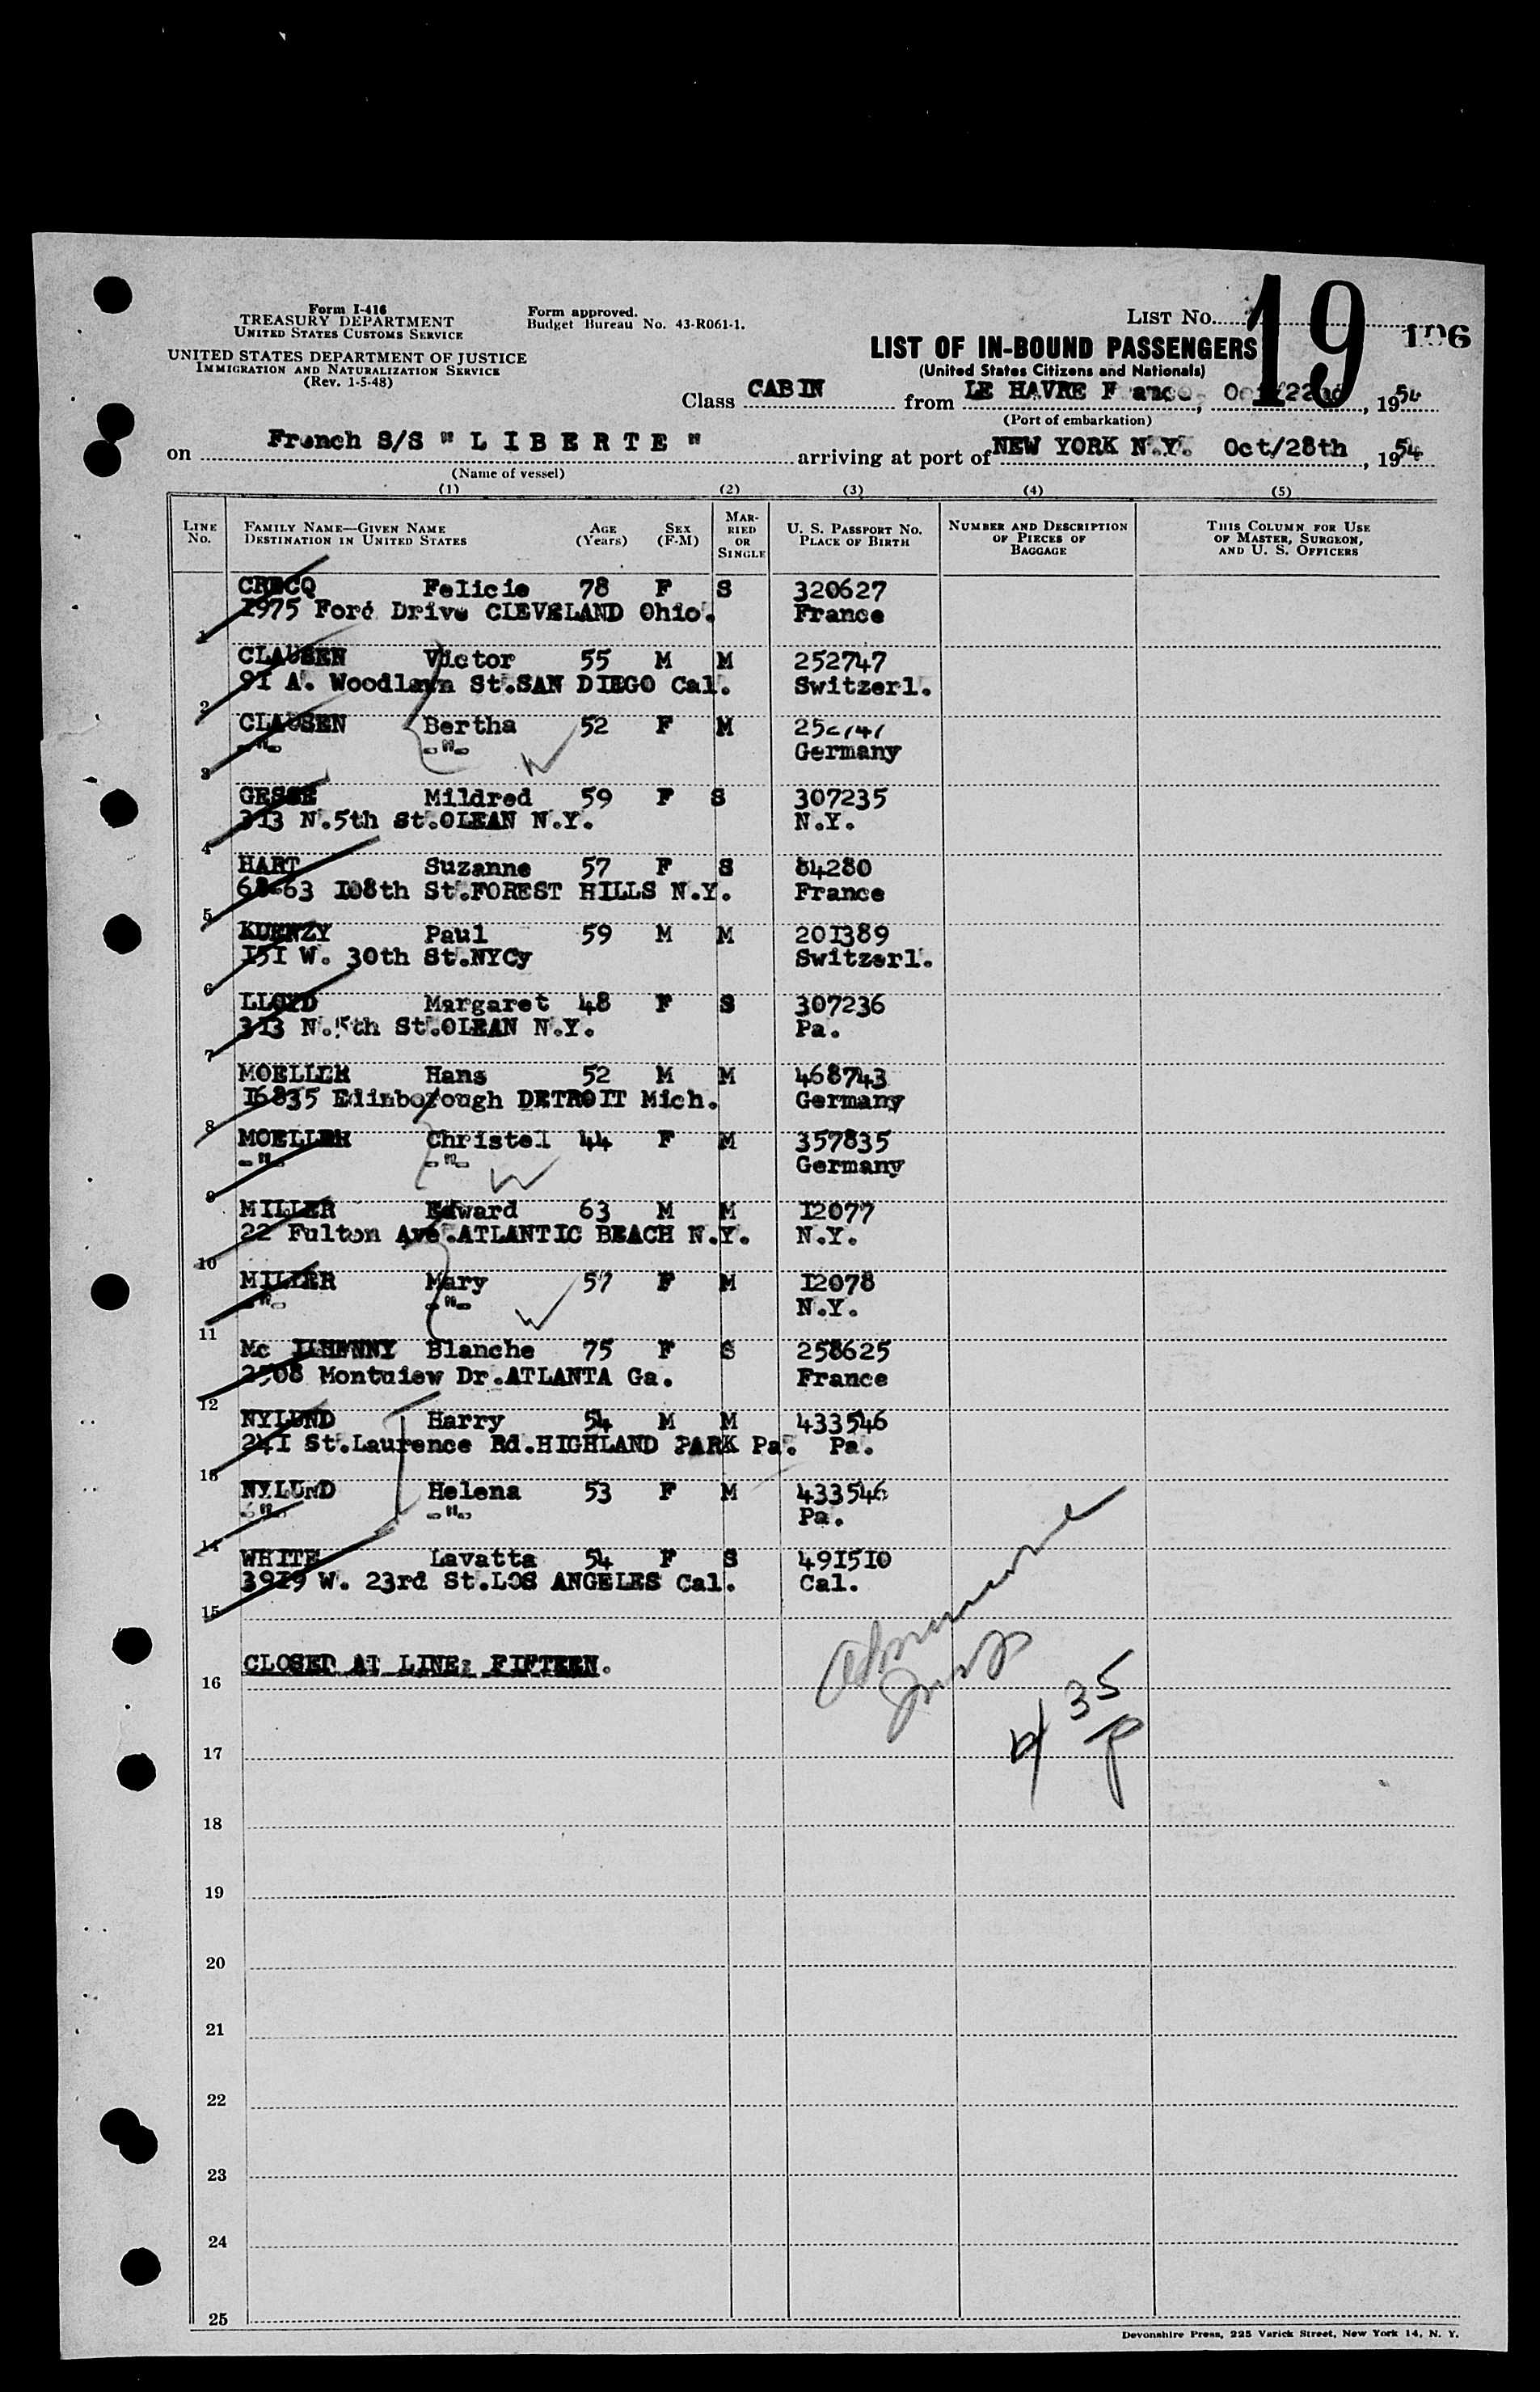 Form I-416
TREASURY DEPARTMENT
UNITED STATES CUSTOMS SERVICE
UNITED STATES DEPARTMENT OF JUSTICE
IMMIGRATION AND NATURALIZATION SERVICE
(Rev. 1-5-48)
Form approved.
Budget Bureau No. 43-R061-1.
LIST No. 19
106
LIST OF IN-BOUND PASSENGERS
(United States Citizens and Nationals)
Class CABIN from LE HAVRE France, Oct/22nd, 1954
(Port of embarkation)
on French S/S " L I B E R T E " arriving at port of NEW YORK N.Y. Oct/28th, 1954
(Name of vessel)
(1) (2) (3) (4) (5)
LINE No. FAMILY NAME—GIVEN NAME DESTINATION IN UNITED STATES AGE (Years) SEX (F-M) MARRIED OR SINGLE U. S. PASSPORT No. PLACE OF BIRTH NUMBER AND DESCRIPTION OF PIECES OF BAGGAGE THIS COLUMN FOR USE OF MASTER, SURGEON, AND U. S. OFFICERS
CRECQ Felicie 78 F S 320627
1975 Ford Drive CLEVELAND Ohio. France
1
CLAUSEN Victor 55 M M 252747
91 A. Woodlawn St.SAN DIEGO Cal. Switzerl.
2
CLAUSEN Bertha 52 F M 252747
-"- -"- Germany
3
GESSE Mildred 59 F S 307235
313 N.5th St.OLEAN N.Y. N.Y.
4
HART Suzanne 57 F S 84280
68-63 108th St.FOREST HILLS N.Y. France
5
KUENZY Paul 59 M M 201389
151 W. 30th St.NYCy Switzerl.
6
LLOYD Margaret 48 F S 307236
313 N.5th St.OLEAN N.Y. Pa.
7
MOELLER Hans 52 M M 468743
16835 Edinborough DETROIT Mich. Germany
8
MOELLER Christel 44 F M 357835
-"- -"- Germany
9
MILLER Edward 63 M M 12077
22 Fulton Ave.ATLANTIC BEACH N.Y. N.Y.
10
MILLER Mary 57 F M 12078
-"- -"- N.Y.
11
Mc ILHENNY Blanche 75 F S 258625
2508 Montuiew Dr.ATLANTA Ga. France
12
NYLUND Harry 54 M M 433546
241 St.Laurence Rd.HIGHLAND PARK Pa. Pa.
13
NYLUND Helena 53 F M 433546
-"- -"- Pa.
14
WHITE Lavatta 54 F S 491510
3919 W. 23rd St.LOS ANGELES Cal. Cal.
15
CLOSED AT LINE: FIFTEEN.
16
35
17
18
19
20
21
22
23
24
25
Devonshire Press, 225 Varick Street, New York 14, N. Y.